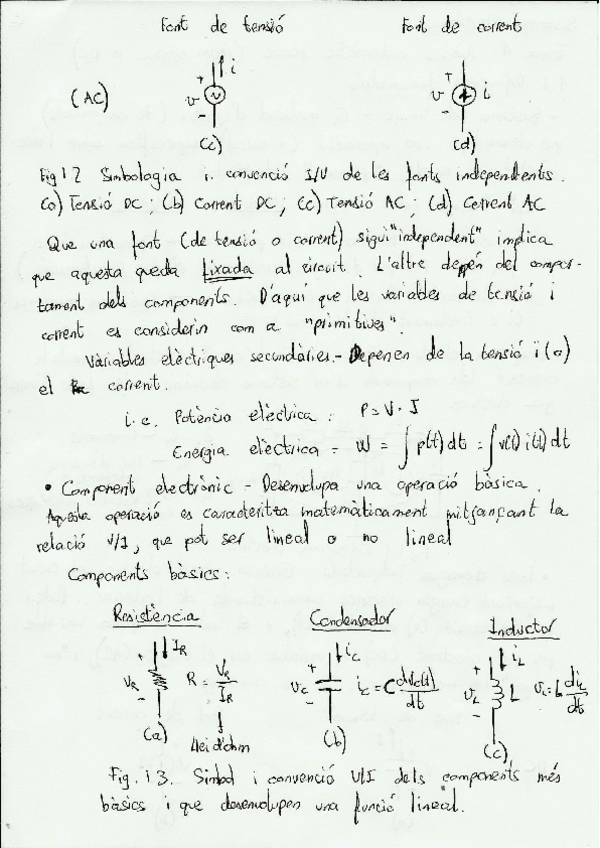 Font de tensió Font de corrent
(AC) + v - i + v - i
(c) (d)
Fig 1.2 Simbologia i convenció I/V de les fonts independents.
(a) Tensió DC; (b) Corrent DC; (c) Tensió AC; (d) Corrent AC
Que una font (de tensió o corrent) sigui "independent" implica
que aquesta queda fixada al circuit. L'altre depèn del compor-
tament dels components. D'aquí que les variables de tensió i
corrent es considerin com a "primitives".
Variables elèctriques secundàries.- Depenen de la tensió i (o)
el corrent.
i.e. Potència elèctrica: P = V · I
Energia elèctrica = W = ∫ p(t) dt = ∫ v(t) i(t) dt
• Component electrònic - Desenvolupa una operació bàsica.
Aquesta operació es caracteritza matemàticament mitjançant la
relació V/I, que pot ser lineal o no lineal
Components bàsics:
Resistència Condensador Inductor
+ VR - IR R = VR/IR + vC - iC iC = C dvc(t)/dt + vL - iL L vL = L diL/dt
(a) Llei d'ohm (b) (c)
Fig. 1.3. Símbol i convenció V/I dels components més
bàsics i que desenvolupen una funció lineal.